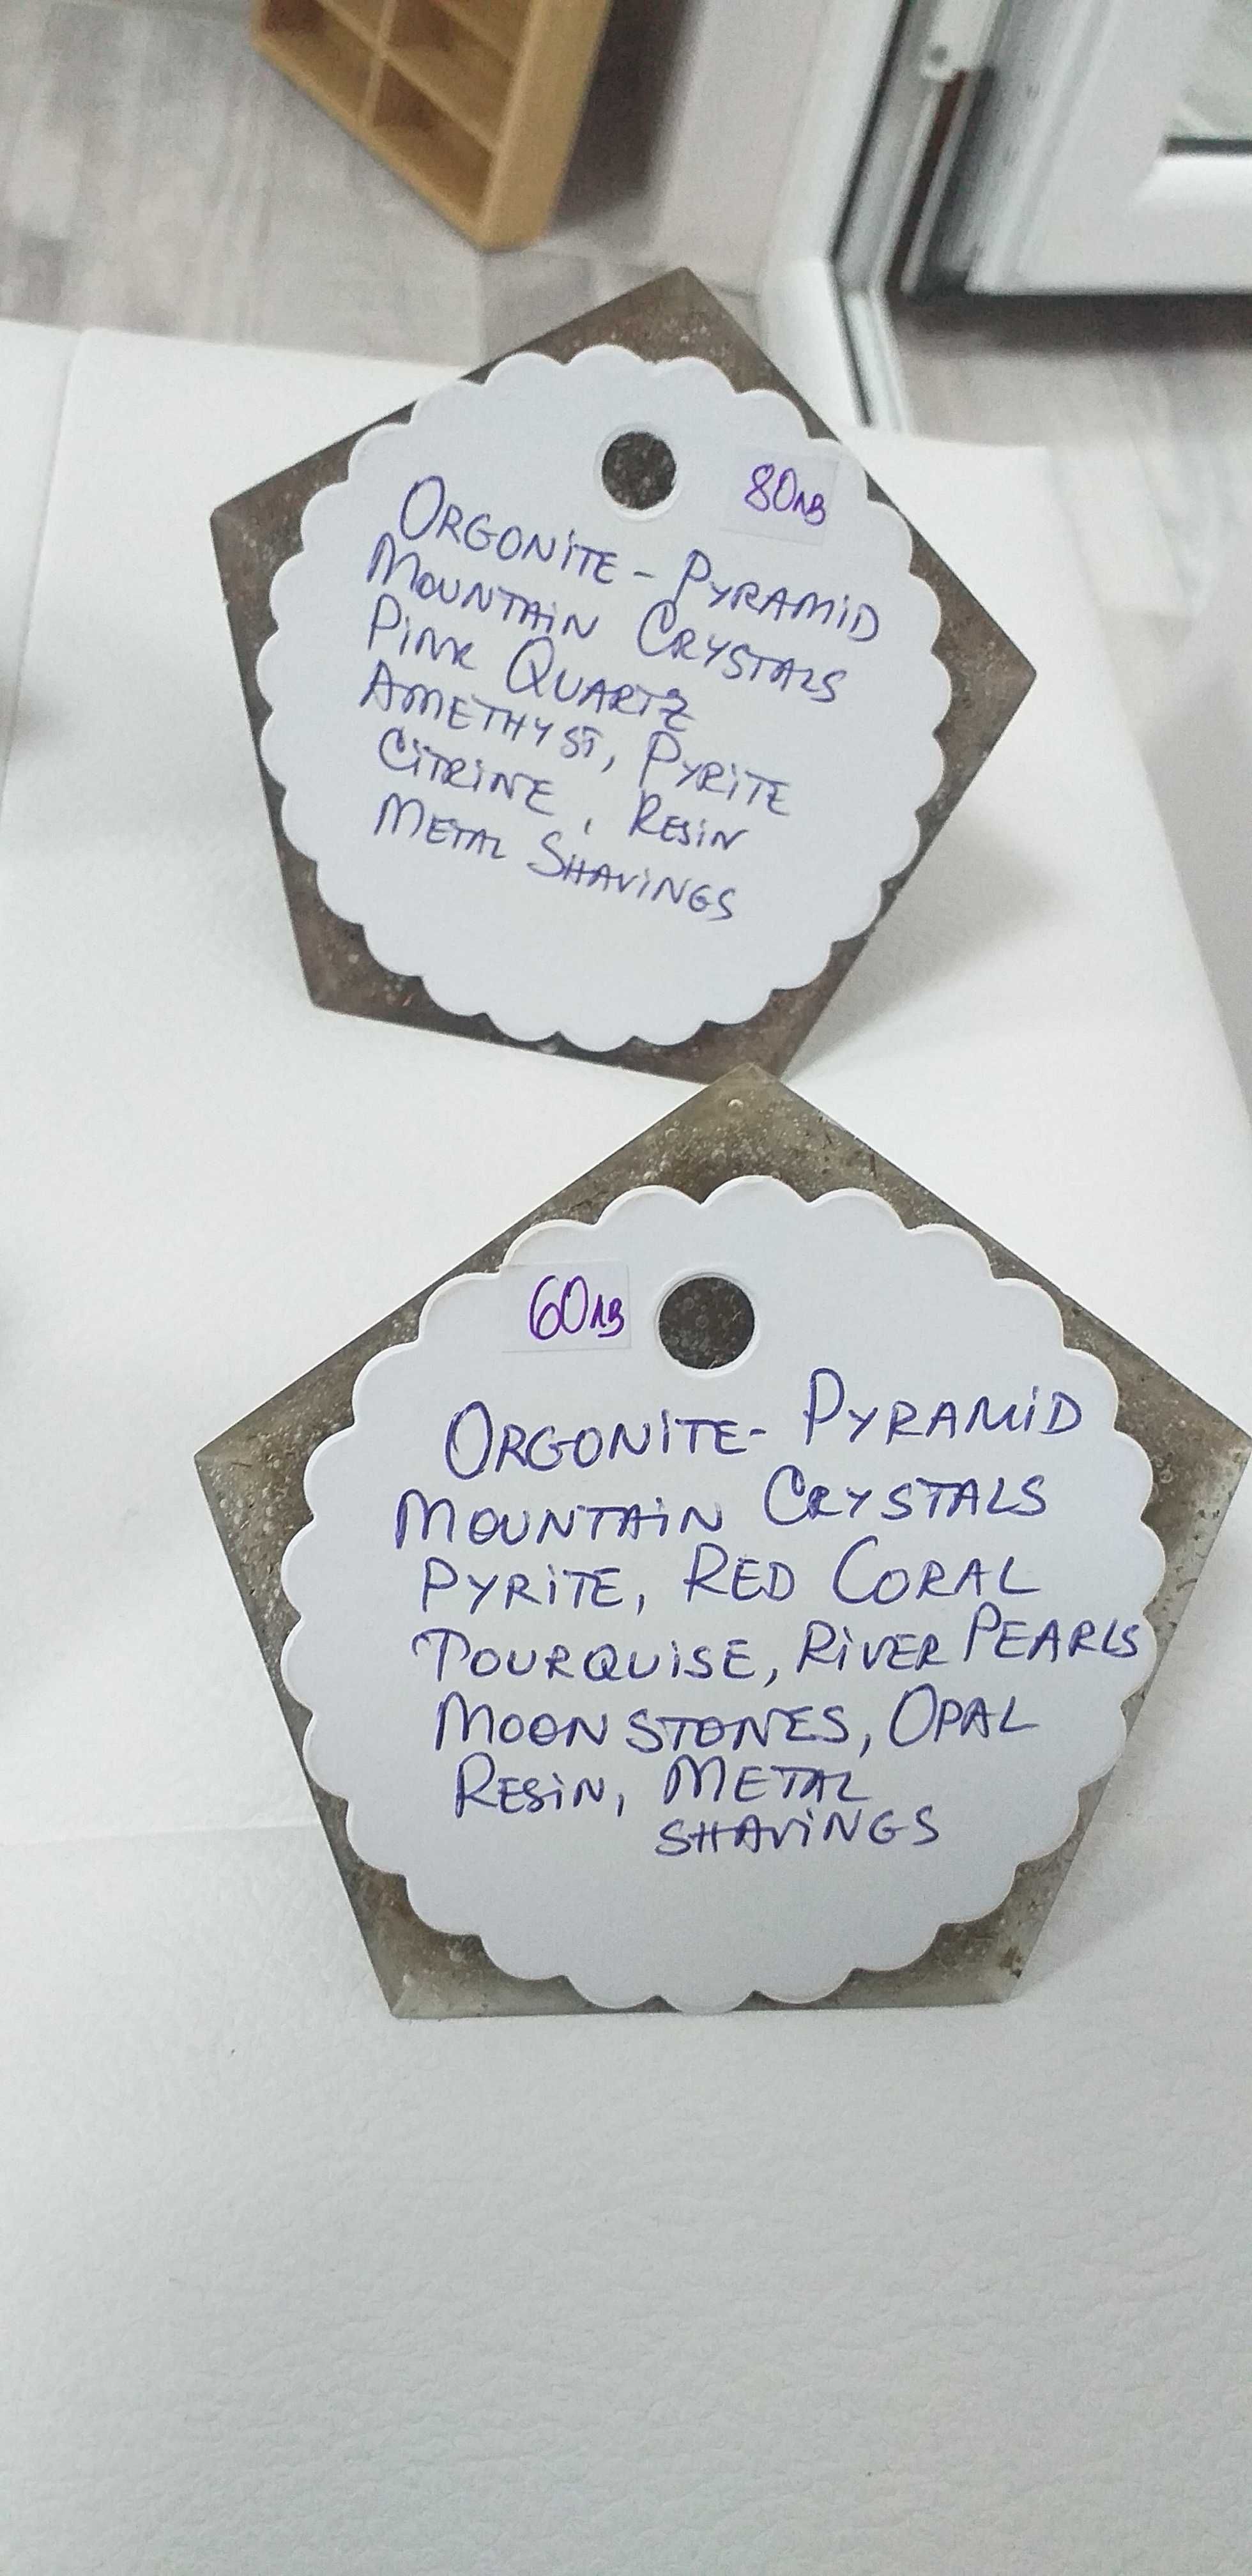 80лв
ORGONiTE - PYRAMiD
MOUNTAiN CRYSTALS
PiNK QUARTZ
AMETHYST, PYRiTE
CiTRiNE, RESiN
METAL SHAViNGS
60лв
ORGONiTE- PYRAMiD
MOUNTAiN CRYSTALS
PYRiTE, RED CORAL
TOURQUiSE, RiVER PEARLS
MOONSTONES, OPAL
RESiN, METAL
SHAViNGS